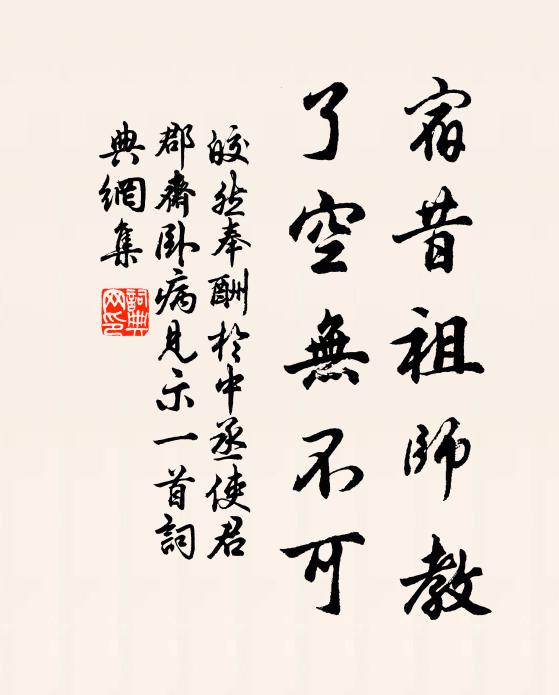 宿昔祖師教
了空無不可
皎然奉酬於中丞使君
郡齋卧病見示一首詞
典網集
詞典網印